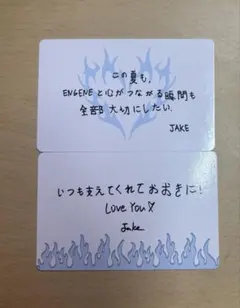 この夏も、
ENGENEと心がつながる瞬間も
全部大切にしたい。
JAKE
いつも支えてくれておおきに!
Love You X
Jake